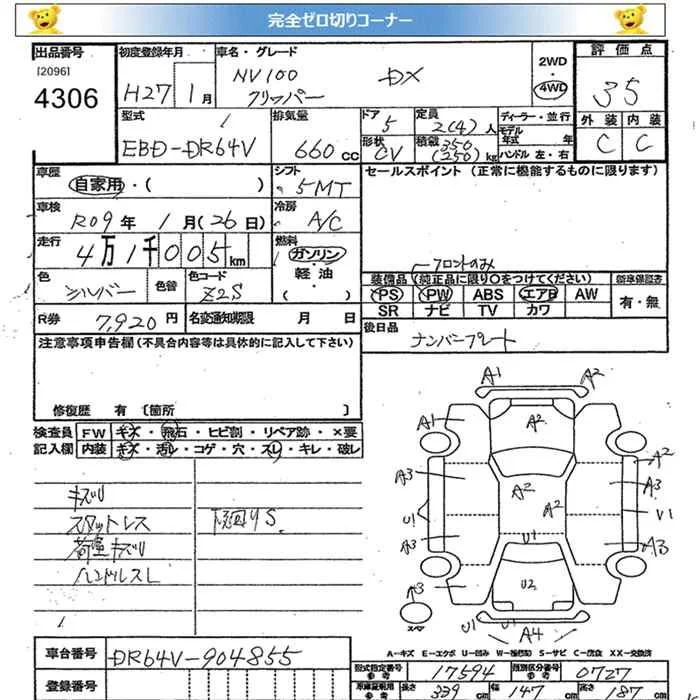 完全ゼロ切りコーナー
出品番号 [2096] 4306
初度登録年月 H27 1月
車名・グレード NV100 クリッパー DX
2WD 4WD
評価点 35
外装 C 内装 C
型式 EBD-DR64V
排気量 660cc
ドア 5
形状 CV
定員 2(4)人
積載 350 (250)kg
ディーラー・並行
モデル年式 年
ハンドル 左・右
車歴 自家用・( )
シフト 5MT
車検 R09年 1月(26日)
冷房 A/C
走行 4万1千005km
燃料 ガソリン・軽油・( )
色 シルバー 色替
色コード Z2S
R券 7,920円
名変通知期限 月 日
セールスポイント(正常に機能するものに限ります)
フロントのみ
装備品(純正品に限り○をつけてください)
新車保証書 有・無
PS PW ABS エアB AW
SR ナビ TV カワ
後日品 ナンバープレート
注意事項申告欄(不具合内容等は具体的に記入して下さい)
修復歴 有〔箇所 〕
検査員記入欄
FW キズ・飛石・ヒビ割・リペア跡・×要
内装 キズ・汚レ・コゲ・穴・スレ・キレ・破レ
キズU
スタットレス
荷室キズU
ハンドルスレ
下廻りS
A1 A2
A1 A2
A2
A3 A2 A3
A2
U1 V1
A3 U1 A3
U2
3
スペア
U1 A4 U1
A-キズ E-エクボ U-凹み W-補修跡 S-サビ C-腐食 XX-交換済
車台番号 DR64V-904855
登録番号
型式指定番号 参考 17594
類別区分番号 参考 0727
車庫証明用 参考 長さ 339cm 幅 147cm 高さ 187cm